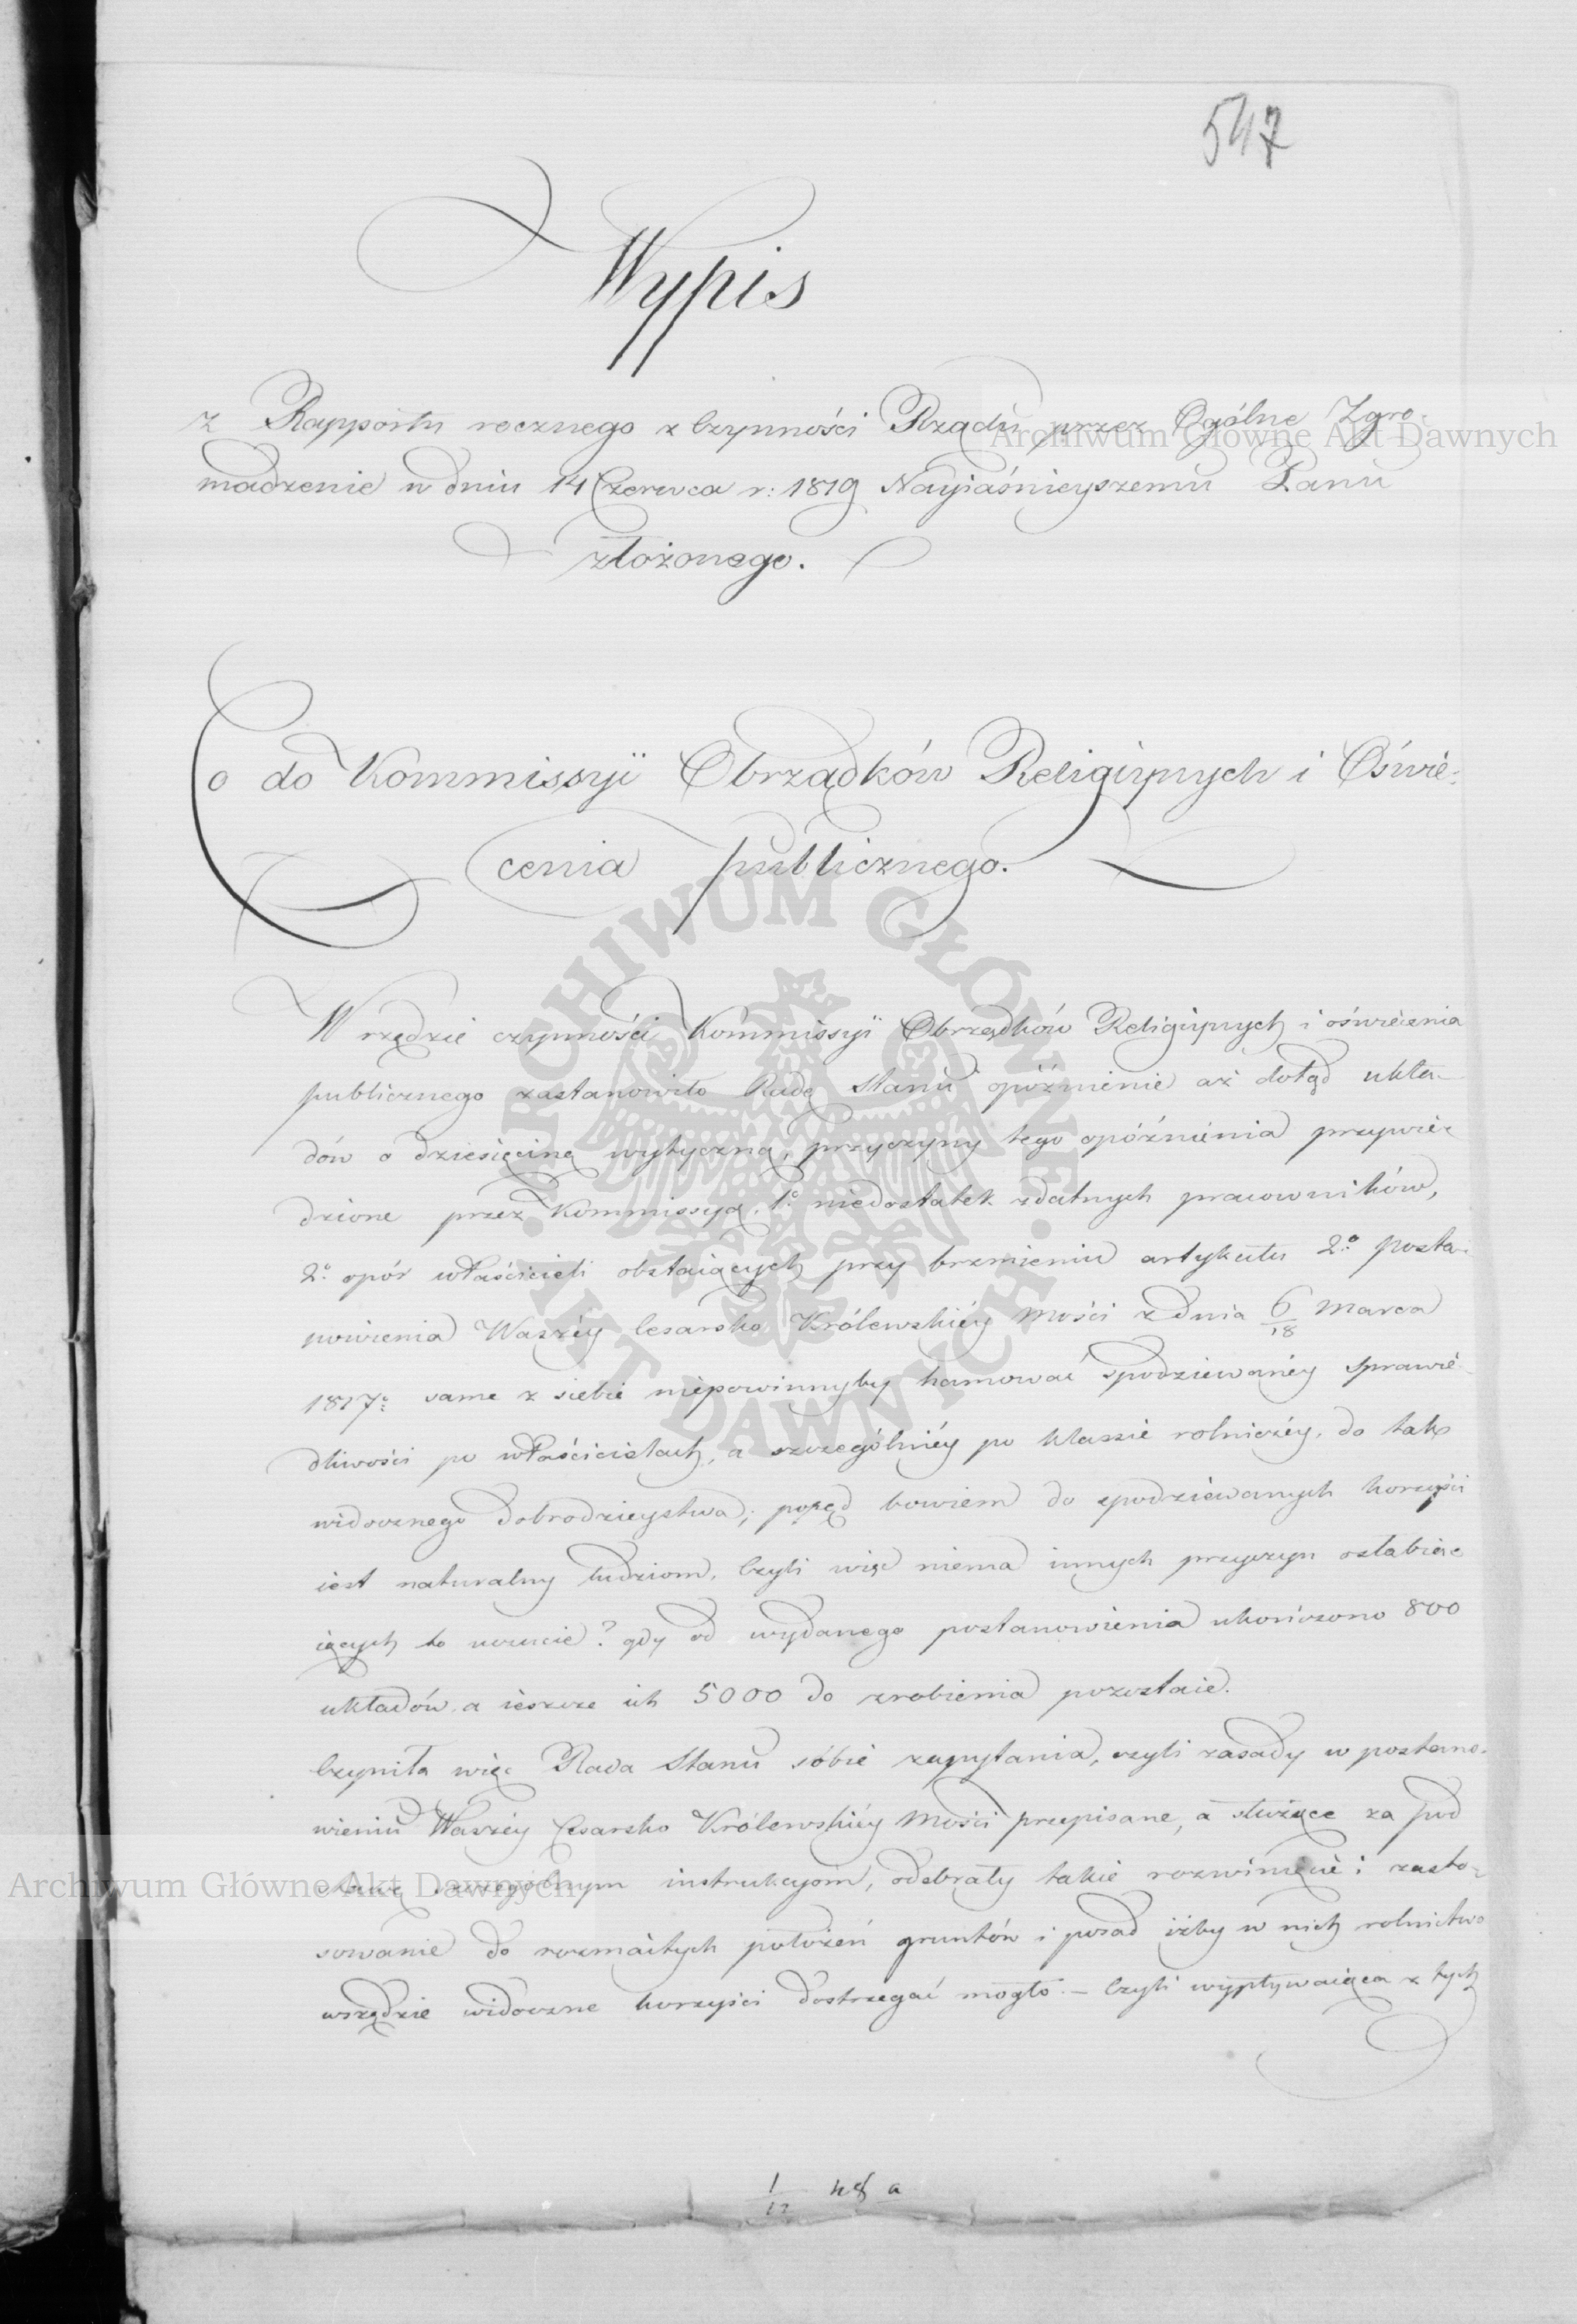 547
Wypis
z Rapportu rocznego z Czynności Rządu przez Ogólne Zgro-
madzenie w dniu 14 Czerwca r: 1819 Nayjaśnieyszemu Panu
złożonego.
Co do Kommissyi Obrządków Religiynych i Oświe-
cenia publicznego.
W rzędzie czynności Kommissyi Obrządków Religiynych i oświecenia
publicznego zastanowiło Radę Stanu opóźnienie aż dotąd ukła-
dów o dziesięcinę wytyczną, przyczyny tego opóźnienia przywie-
dzione przez Kommissyą, 1º niedostatek zdatnych pracowników,
2º opór właścicieli obstaiących przy brzmieniu artykułu 2º posta-
nowienia Waszéy Cesarsko Królewskiéy Mości z dnia 6/18 Marca
1817: same z siebie niepowinnyby hamować spodziewanéy sprawie-
dliwości po właścicielach, a szczególniéy po klassie rolniczéy, do tak
widocznego dobrodzieystwa; popęd bowiem do spodziewanych korzyści
iest naturalny ludziom, Czyli więc niema innych przyczyn osłabia-
iących to uczucie? gdy od wydanego postanowienia ukończono 800
układów, a ieszcze ich 5000 do zrobienia pozostaie.
Czyniła więc Rada Stanu sobie zapytania, czyli zasady w postano-
wieniu Waszéy Cesarsko Królewskiéy Mości przepisane, a służące za pod
stawę szczególnym instrukcyom, odebrały takie rozwinięcie i zasto-
sowanie do rozmaitych położeń gruntów i posad iżby w nich rolnictwo
wszędzie widoczne korzyści dostrzegać mogło. – Czyli wypływaiąca z tych
1/12 48 a
Archiwum Główne Akt Dawnych
Archiwum Główne Akt Dawnych
ARCHIWUM GŁÓWNE
AKT DAWNYCH